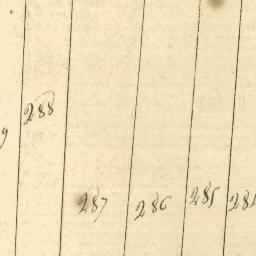 288
287 286 285